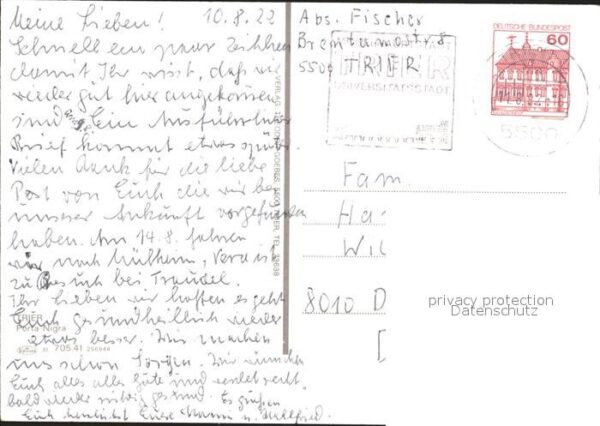 Meine Lieben! 10.8.22
Schnell ein paar Zeilen
damit Ihr wisst, daß wir
wieder gut hier angekommen
sind. Ein Ausführlicher
Brief kommt etwas später.
Vielen Dank für die liebe
Post von Euch die wir bei
unserer Ankunft vorgefunden
haben. Am 14.8. fahren
wir nach Mülheim, Vera ist
zu Besuch bei Traudel.
Ihr Lieben wir hoffen es geht
Euch gesundheitlich wieder
etwas besser. Wir machen
uns schon Sorgen. Wir wünschen
Euch alles alles Gute und
bald wieder
Euch Eure
TRIER
Porta Nigra
705.41
Abs. Fischer
Brentanostr. 8
5500 TRIER
TRIER
UNIVERSITÄTSSTADT
DEUTSCHE BUNDESPOST
60
5500
Fam.
Ha
Wil
8010 D
privacy protection
Datenschutz